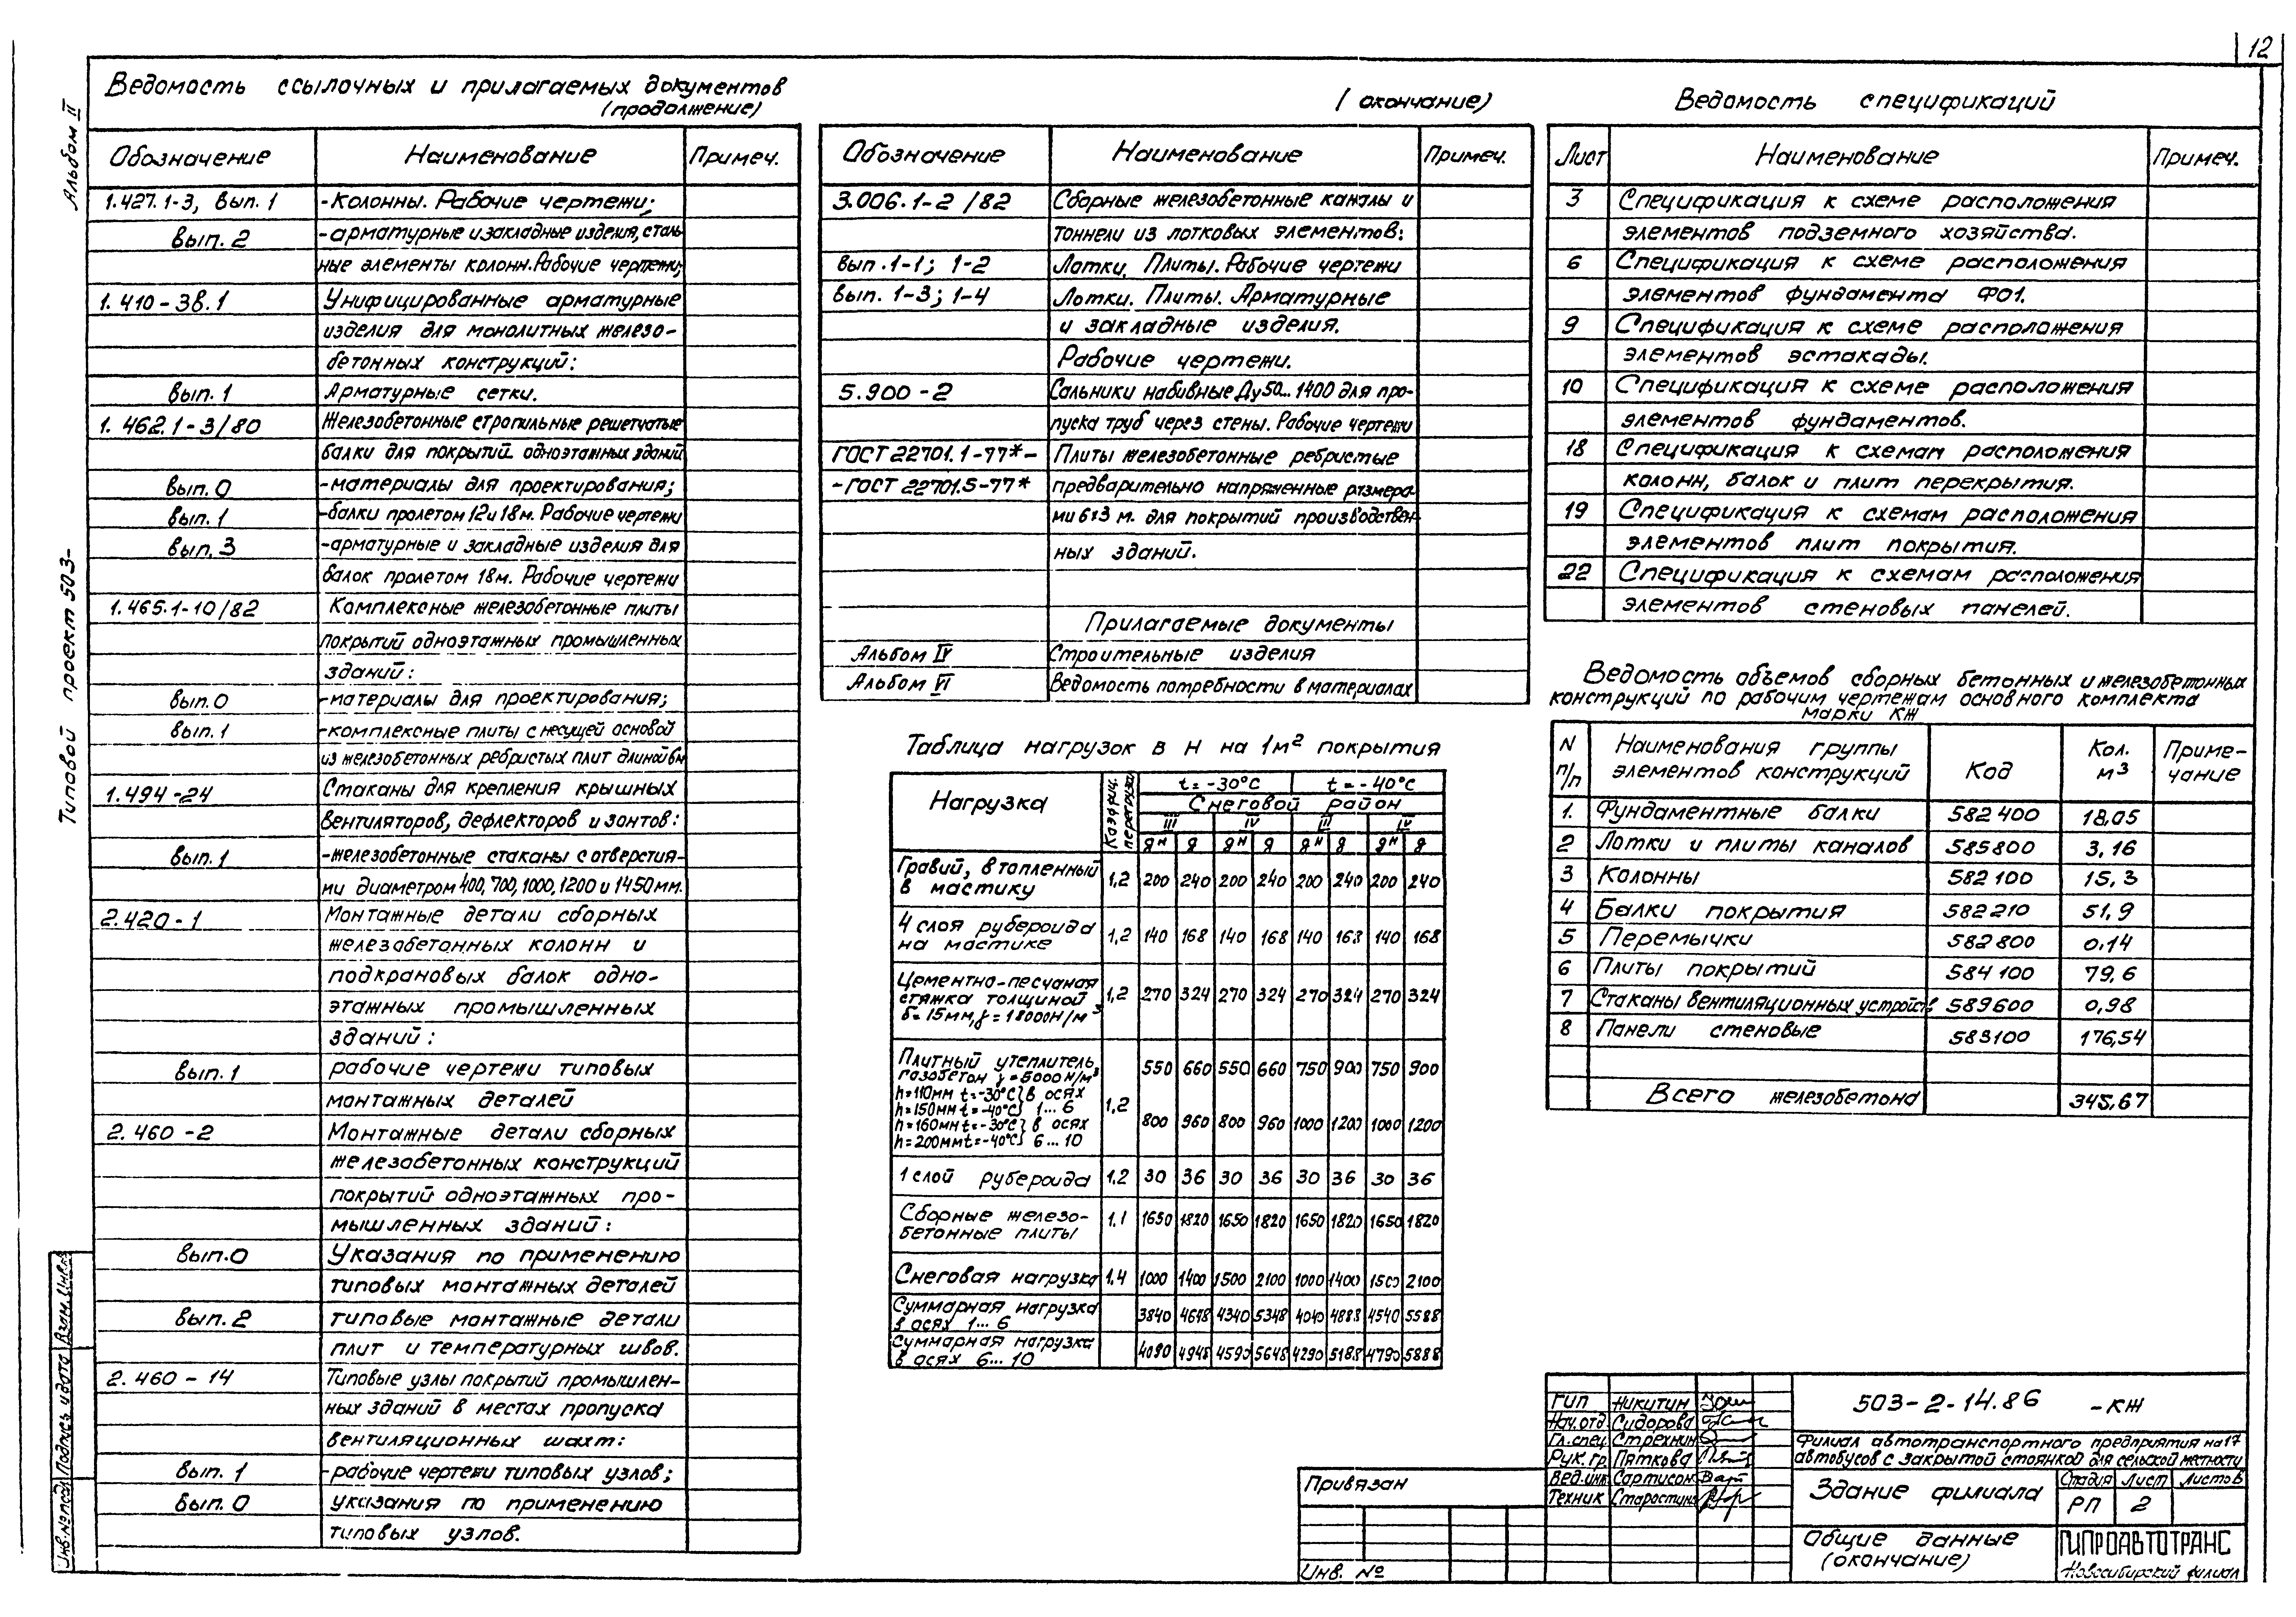 12
Альбом II
Типовой проект 503-
Ведомость ссылочных и прилагаемых документов
(продолжение)
Обозначение Наименование Примеч.
1.427.1-3, вып. 1 -Колонны. Рабочие чертежи;
вып. 2 -арматурные и закладные изделия, сталь
ные элементы колонн. Рабочие чертежи;
1.410-3в.1 Унифицированные арматурные
изделия для монолитных железо-
бетонных конструкций:
вып. 1 Арматурные сетки.
1.462.1-3/80 Железобетонные стропильные решетчатые
балки для покрытий одноэтажных зданий
вып. 0 -материалы для проектирования;
вып. 1 -балки пролетом 12 и 18м. Рабочие чертежи
вып. 3 -арматурные и закладные изделия для
балок пролетом 18м. Рабочие чертежи
1.465.1-10/82 Комплексные железобетонные плиты
покрытий одноэтажных промышленных
зданий:
вып.0 -материалы для проектирования;
вып. 1 -комплексные плиты с несущей основой
из железобетонных ребристых плит длиной 6м
1.494-24 Стаканы для крепления крышных
вентиляторов, дефлекторов и зонтов:
вып. 1 -железобетонные стаканы с отверстия-
ми диаметром 400, 700, 1000, 1200 и 1450мм.
2.420-1 Монтажные детали сборных
железобетонных колонн и
подкрановых балок одно-
этажных промышленных
зданий:
вып. 1 рабочие чертежи типовых
монтажных деталей
2.460-2 Монтажные детали сборных
железобетонных конструкций
покрытий одноэтажных про-
мышленных зданий:
вып.0 Указания по применению
типовых монтажных деталей
вып. 2 типовые монтажные детали
плит и температурных швов.
2.460-14 Типовые узлы покрытий промышлен-
ных зданий в местах пропуска
вентиляционных шахт:
вып. 1 -рабочие чертежи типовых узлов;
вып. 0 указания по применению
типовых узлов.
(окончание)
Обозначение Наименование Примеч.
3.006.1-2/82 Сборные железобетонные каналы и
тоннели из лотковых элементов:
вып. 1-1; 1-2 Лотки. Плиты. Рабочие чертежи
вып. 1-3; 1-4 Лотки. Плиты. Арматурные
и закладные изделия.
Рабочие чертежи.
5.900-2 Сальники набивные Ду50...1400 для про-
пуска труб через стены. Рабочие чертежи
ГОСТ 22701.1-77*- Плиты железобетонные ребристые
-ГОСТ 22701.5-77* предварительно напряженные размера-
ми 6х3 м. для покрытий производствен-
ных зданий.
Прилагаемые документы
Альбом IV Строительные изделия
Альбом VI Ведомость потребности в материалах
Таблица нагрузок в Н на 1м² покрытия
Нагрузка Коэффиц. перегрузки t = -30°С t = -40°С
Снеговой район
III IV III IV
gН g gН g gН g gН g
Гравий, втопленный
в мастику 1,2 200 240 200 240 200 240 200 240
4 слоя рубероида
на мастике 1,2 140 168 140 168 140 168 140 168
Цементно-песчаная
стяжка толщиной 1,2 270 324 270 324 270 324 270 324
δ=15мм, γ=18000Н/м³
Плитный утеплитель,
газобетон γ=5000Н/м³ 550 660 550 660 750 900 750 900
h=110мм t=-30°С} в осях
h=150мм t=-40°С} 1...6 1,2
h=160мм t=-30°С} в осях 800 960 800 960 1000 1200 1000 1200
h=200мм t=-40°С} 6...10
1 слой рубероида 1,2 30 36 30 36 30 36 30 36
Сборные железо-
бетонные плиты 1,1 1650 1820 1650 1820 1650 1820 1650 1820
Снеговая нагрузка 1,4 1000 1400 1500 2100 1000 1400 1500 2100
Суммарная нагрузка
в осях 1...6 3840 4648 4340 5348 4040 4888 4540 5588
Суммарная нагрузка
в осях 6...10 4090 4948 4590 5648 4290 5188 4790 5888
Ведомость спецификаций
Лист Наименование Примеч.
3 Спецификация к схеме расположения
элементов подземного хозяйства.
6 Спецификация к схеме расположения
элементов фундамента Ф01.
9 Спецификация к схеме расположения
элементов эстакады.
10 Спецификация к схеме расположения
элементов фундаментов.
18 Спецификация к схемам расположения
колонн, балок и плит перекрытия.
19 Спецификация к схемам расположения
элементов плит покрытия.
22 Спецификация к схемам расположения
элементов стеновых панелей.
Ведомость объемов сборных бетонных и железобетонных
конструкций по рабочим чертежам основного комплекта
марки КЖ
N п/п Наименования группы элементов конструкций Код Кол. м³ Приме-чание
1. Фундаментные балки 582400 18,05
2 Лотки и плиты каналов 585800 3,16
3 Колонны 582100 15,3
4 Балки покрытия 582210 51,9
5 Перемычки 582800 0,14
6 Плиты покрытий 584100 79,6
7 Стаканы вентиляционных устройств 589600 0,98
8 Панели стеновые 583100 176,54
Всего железобетона 345,67
ГИП Никитин
Нач.отд. Сидорова
Гл.спец. Стрехнин
Рук.гр. Пяткова
Вед.инж. Сартисон
Техник Старостина
503-2-14.86 -КЖ
Филиал автотранспортного предприятия на 17
автобусов с закрытой стоянкой для сельской местности
Здание филиала
Стадия Лист Листов
РП 2
Общие данные
(окончание)
ГИПРОАВТОТРАНС
Новосибирский филиал
Привязан
Инв. №
Инв.№подл. Подпись и дата Взам.инв.№